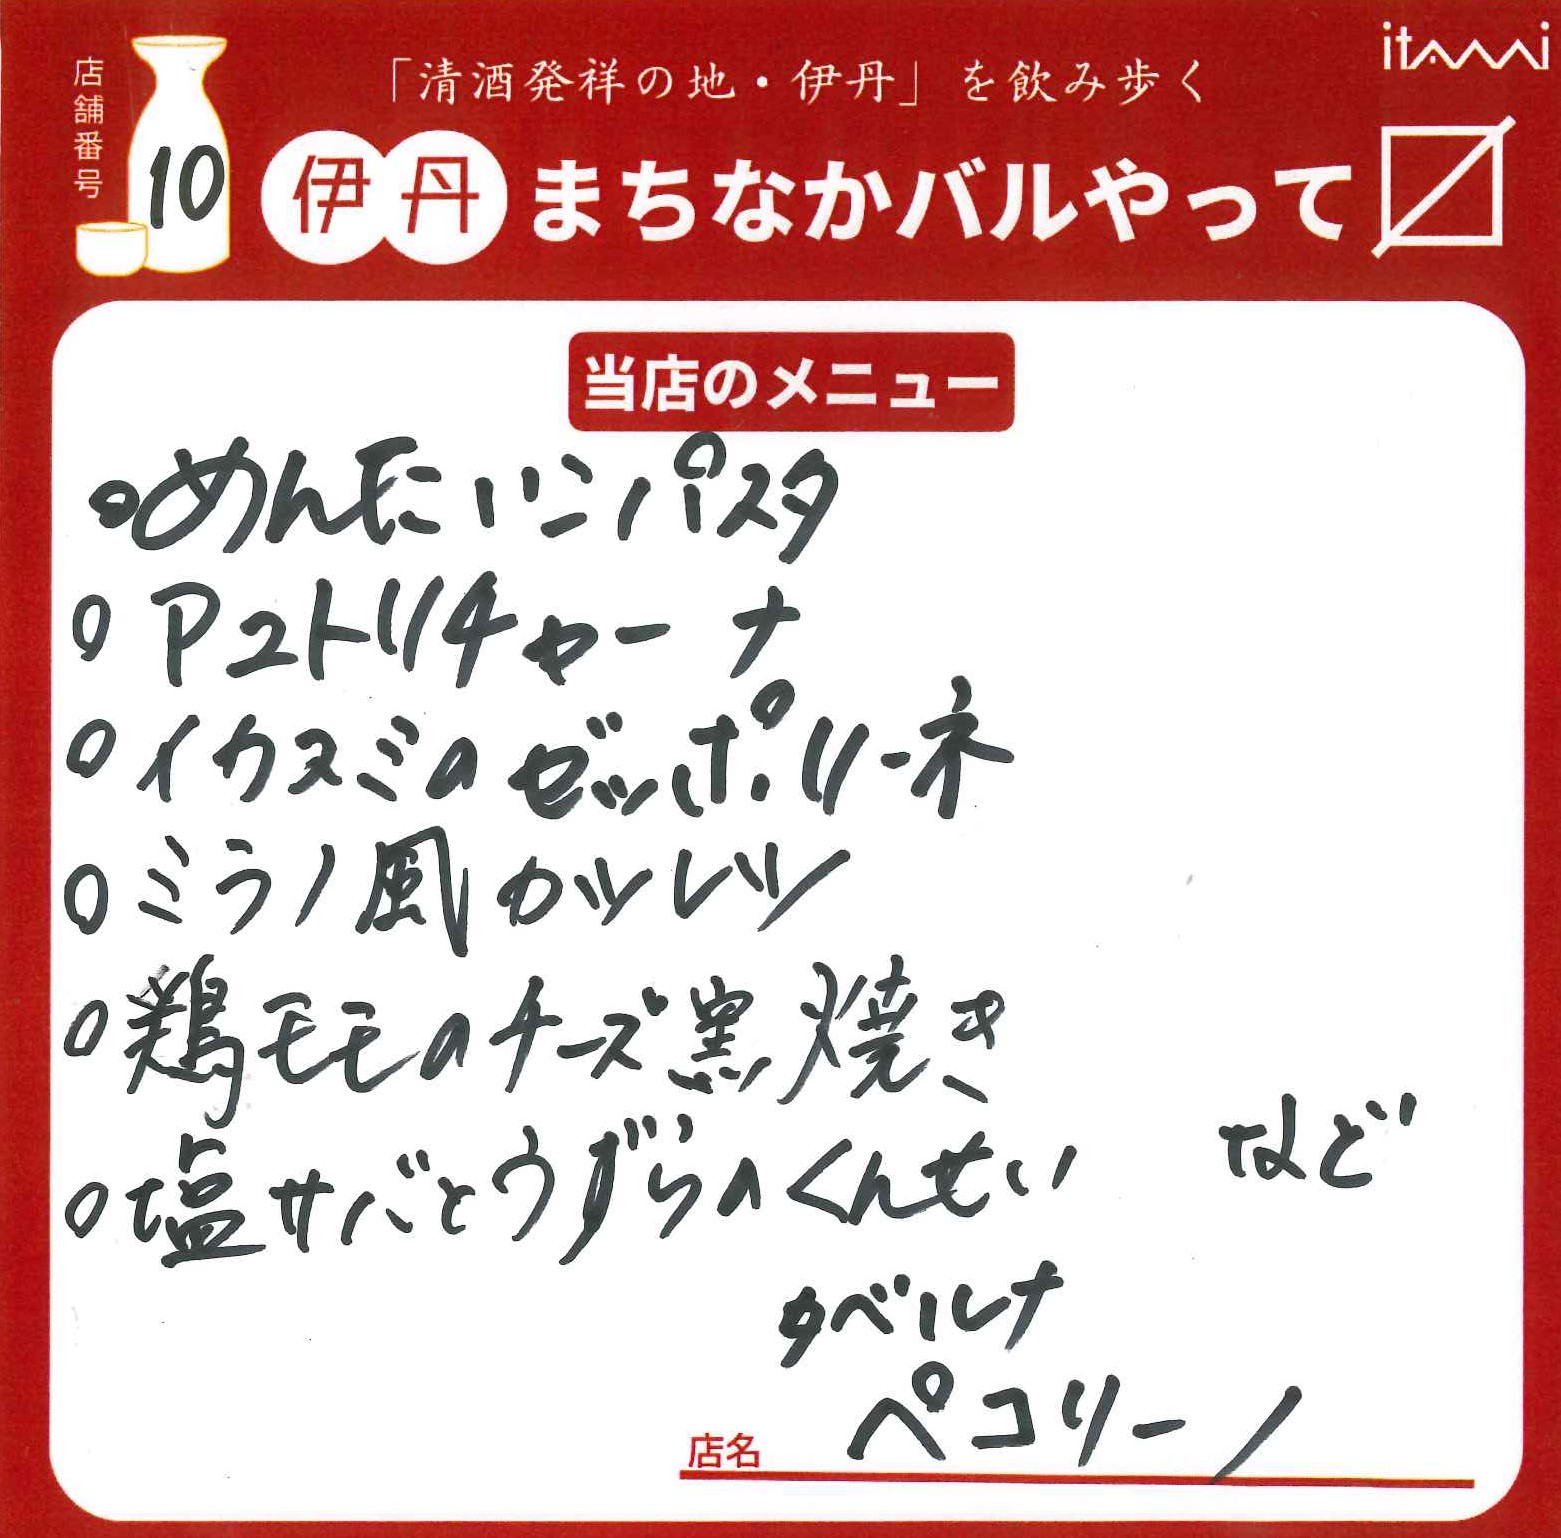 itami
「清酒発祥の地・伊丹」を飲み歩く
店舗番号
10
伊丹まちなかバルやって〼
当店のメニュー
・めんたいこパスタ
○アユトリチャーナ
○イカスミのゼッポリーネ
○ミラノ風カツレツ
○鶏モモのチーズ窯焼き
○塩サバとうずらのくんせい など
タベルナ
店名 ペコリーノ